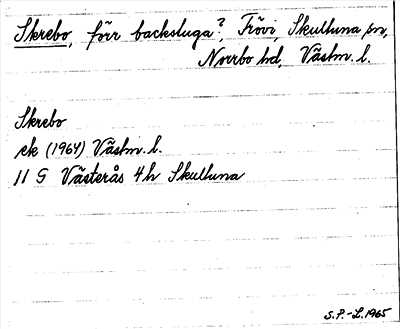 Skrebo, förr backstuga?, Frövi, Skultuna sn,
Norrbo hd, Västm. l.
Skrebo
ek (1964) Västm. l.
11 G Västerås 4 h Skultuna
S.P.-L. 1965